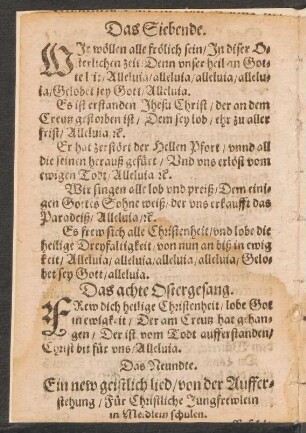 Das Siebende.
WIr wöllen alle frölich sein/ In diser O-
sterlichen zeit/ Denn vnser heil an Got-
te l iꝛ/ Alleluia/ alleluia/ alleluia/ allelu-
ia/ Gelobet sey Gott/ Alleluia.
Es ist erstanden Jhesu Christ/ der an dem
Creutz gestorben ist/ Dem sey lob/ ehr zu aller
frist/ Alleluia ꝛc.
Er hat zerstört der Hellen Pfort/ vnnd all
die seinen herauß gefürt/ Vnd vns erlöst vom
ewigen Todt/ Alleluia ꝛc.
Wir singen alle lob vnd preiß/ Dem eini-
gen Gottes Sohne weiß/ der vns erkaufft das
Paradeiß/ Alleluia/ ꝛc.
Es frew sich alle Christenheit/ vnd lobe die
heilige Dreyfaltigkeit/ von nun an biß in ewig
keit/ Alleluia/ alleluia/ alleluia/ alleluia/ Gelo-
bet sey Gott/ alleluia.
Das achte Ostergesang.
FRew dich heilige Christenheit/ lobe Got
in ewigk-it/ Der am Creutz hat gehan-
gen/ Der ist vom Todt aufferstanden/
Christ bit für vns/ Alleluia.
Das Neundte.
Ein new geistlich lied/ von der Auffer-
stehung/ Für Christliche Jungfrewlein
in Medlein schulen.